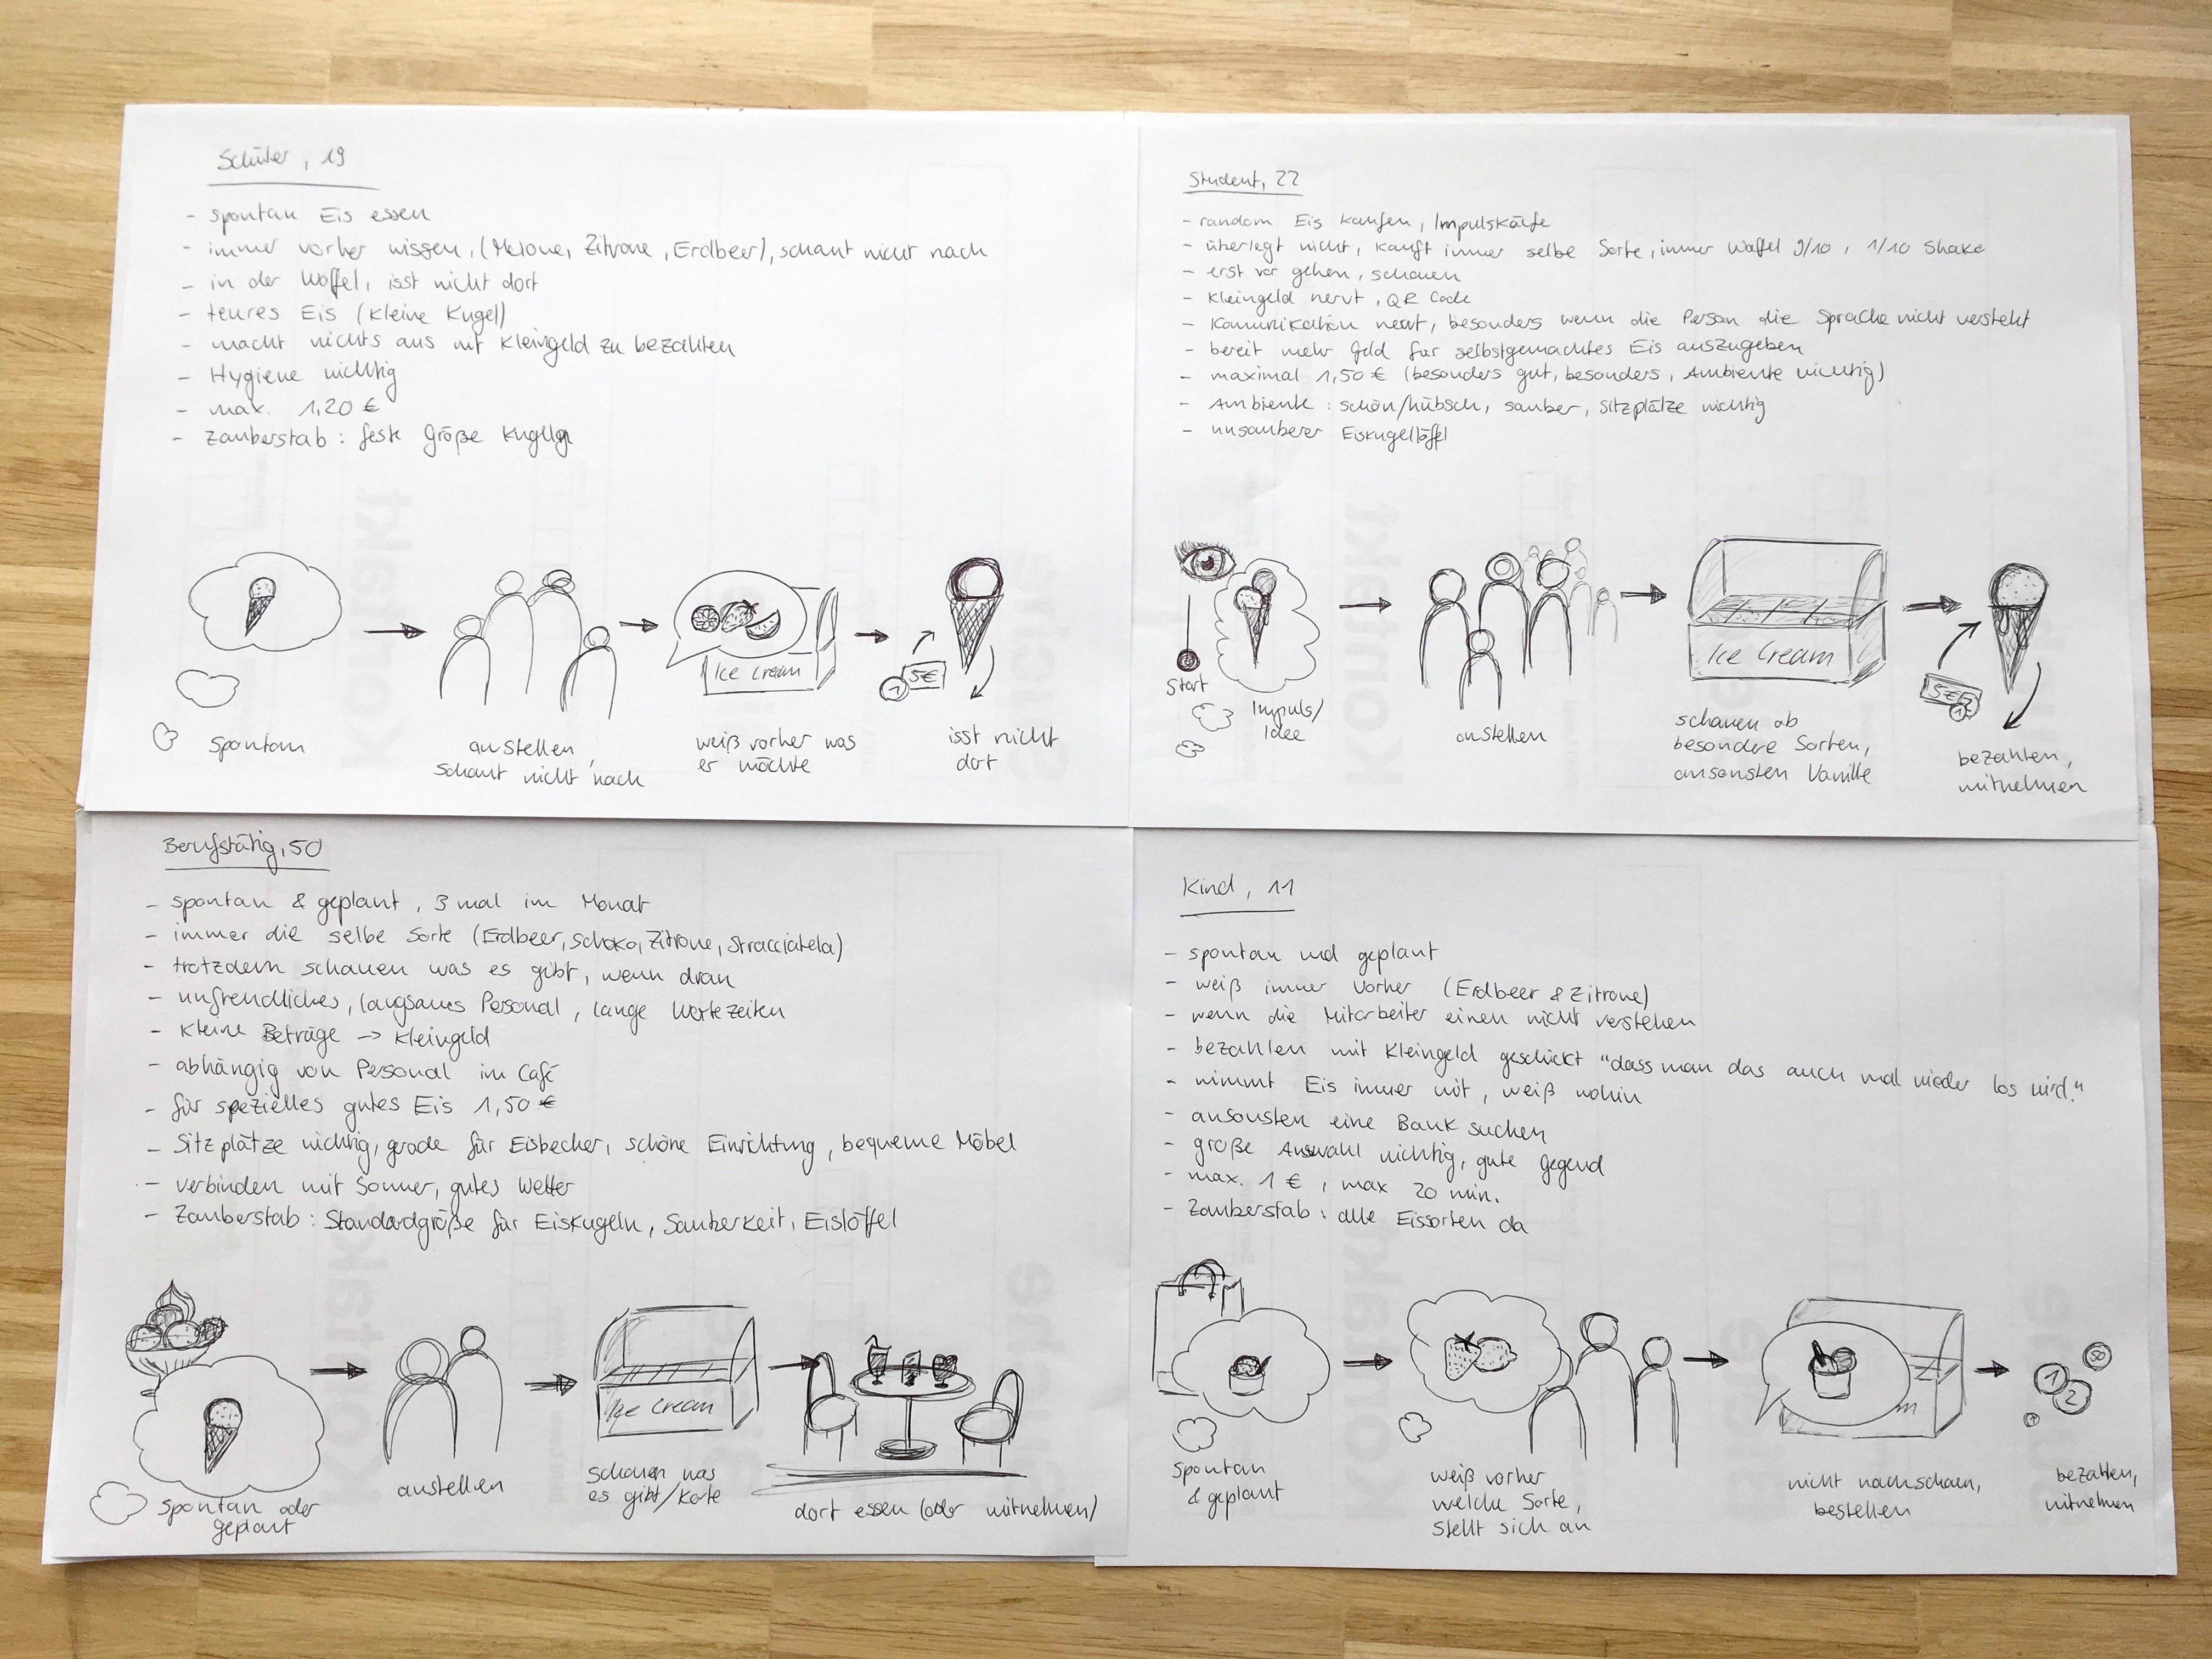 Schüler, 19
- spontan Eis essen
- immer vorher wissen, (Melone, Zitrone, Erdbeer), schaut nicht nach
- in der Waffel, isst nicht dort
- teures Eis (kleine Kugel)
- macht nichts aus mit Kleingeld zu bezahlen
- Hygiene wichtig
- max. 1,20 €
- Zauberstab: feste Größe Kugeln
Ice Cream
5€
1
spontan
anstellen,
schaut nicht nach
weiß vorher was
er möchte
isst nicht
dort
Student, 22
- random Eis kaufen, Impulskäufe
- überlegt nicht, kauft immer selbe Sorte, immer Waffel 9/10, 1/10 Shake
- erst vor gehen, schauen
- Kleingeld nervt, QR Code
- Komunikation nervt, besonders wenn die Person die Sprache nicht versteht
- bereit mehr Geld für selbstgemachtes Eis auszugeben
- maximal 1,50 € (besonders gut, besonders, Ambiente wichtig)
- Ambiente: schön/hübsch, sauber, Sitzplätze wichtig
- unsauberer Eiskugellöffel
Start
Impuls/
Idee
anstellen
Ice Cream
schauen ob
besondere Sorten,
ansonsten Vanille
5€
1
bezahlen,
mitnehmen
Berufstätig, 50
- spontan & geplant, 3 mal im Monat
- immer die selbe Sorte (Erdbeer, Schoko, Zitrone, Stracciatela)
- trotzdem schauen was es gibt, wenn dran
- unfreundliches, langsames Personal, lange Wartezeiten
- kleine Beträge → Kleingeld
- abhängig von Personal im Café
- für spezielles gutes Eis 1,50 €
- Sitzplätze wichtig, grade für Eisbecher, schöne Einrichtung, bequeme Möbel
- verbinden mit Sommer, gutes Wetter
- Zauberstab: Standardgröße für Eiskugeln, Sauberkeit, Eislöffel
spontan oder
geplant
anstellen
Ice Cream
schauen was
es gibt/Karte
dort essen (oder mitnehmen)
Kind, 11
- spontan und geplant
- weiß immer vorher (Erdbeer & Zitrone)
- wenn die Mitarbeiter einen nicht verstehen
- bezahlen mit Kleingeld geschickt "dass man das auch mal wieder los wird."
- nimmt Eis immer mit, weiß wohin
- ansonsten eine Bank suchen
- große Auswahl wichtig, gute Gegend
- max. 1 €, max 20 min.
- Zauberstab: alle Eissorten da
spontan
& geplant
weiß vorher
welche Sorte,
stellt sich an
m
nicht nachschauen,
bestellen
1
2
50
bezahlen,
mitnehmen